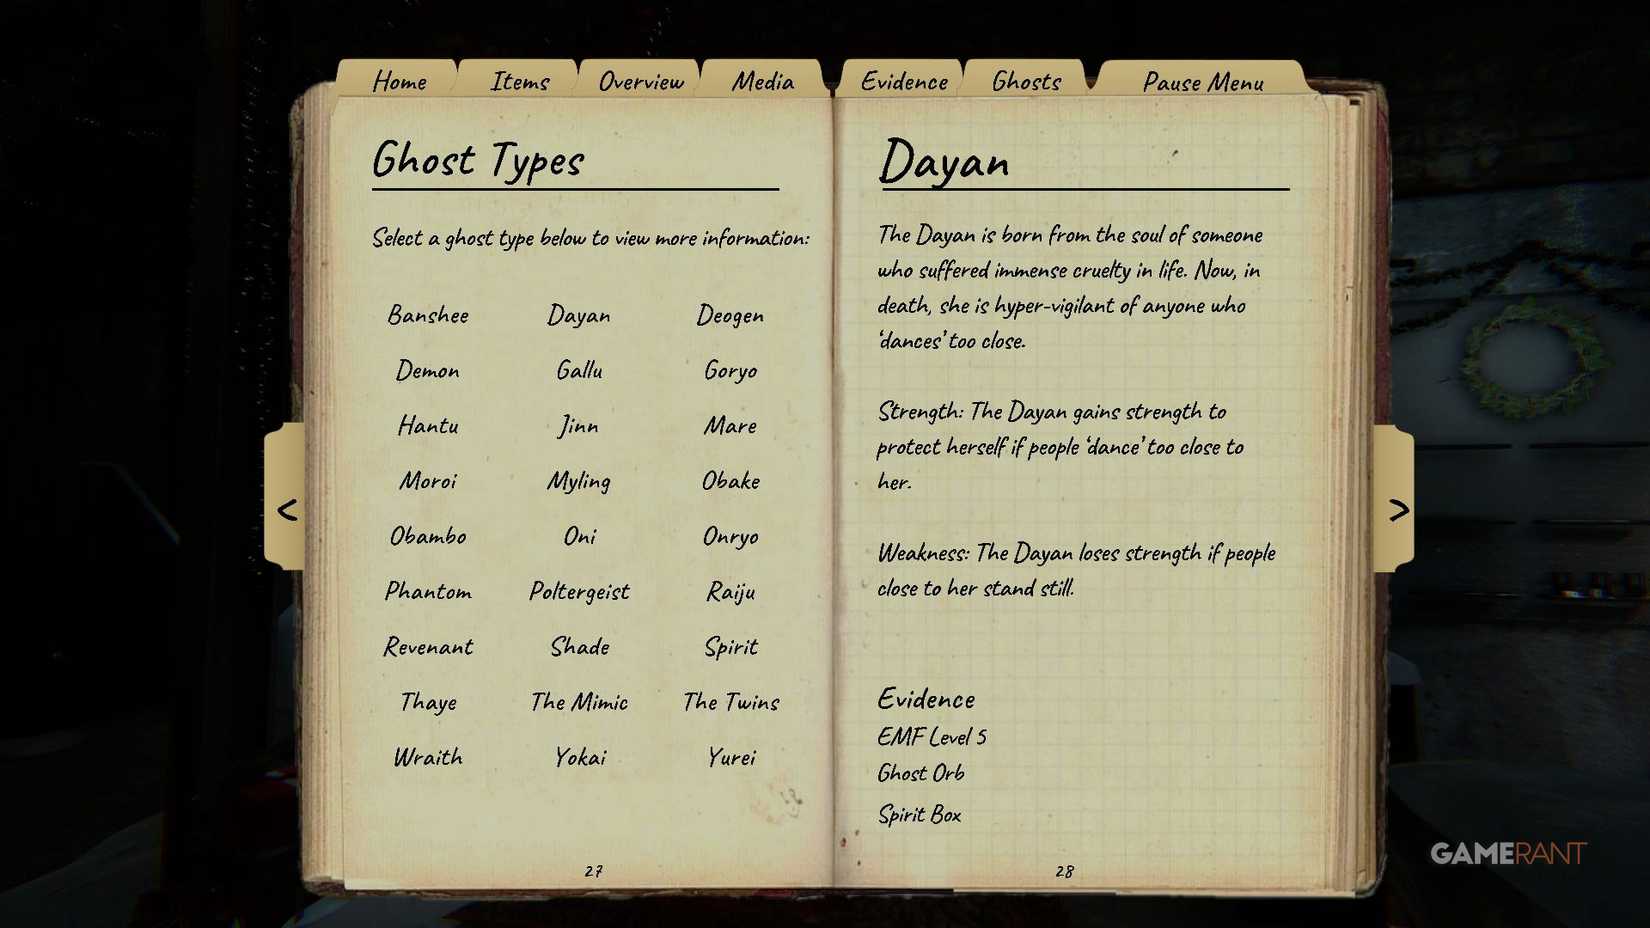 Home Items Overview Media Evidence Ghosts Pause Menu
Ghost Types
Select a ghost type below to view more information:
Banshee Dayan Deogen
Demon Gallu Goryo
Hantu Jinn Mare
Moroi Myling Obake
Obambo Oni Onryo
Phantom Poltergeist Raiju
Revenant Shade Spirit
Thaye The Mimic The Twins
Wraith Yokai Yurei
27
<
Dayan
The Dayan is born from the soul of someone
who suffered immense cruelty in life. Now, in
death, she is hyper-vigilant of anyone who
‘dances’ too close.
Strength: The Dayan gains strength to
protect herself if people ‘dance’ too close to
her.
Weakness: The Dayan loses strength if people
close to her stand still.
Evidence
EMF Level 5
Ghost Orb
Spirit Box
28
>
GAMERANT